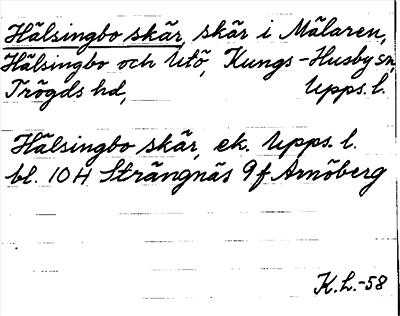 Hälsingbo skär, skär i Mälaren,
Hälsingbo och Utö, Kungs-Husby sn,
Trögds hd, Upps. l.
Hälsingbo skär, ek. Upps. l.
bl. 10H Strängnäs 9f Arnöberg
K.L.-58